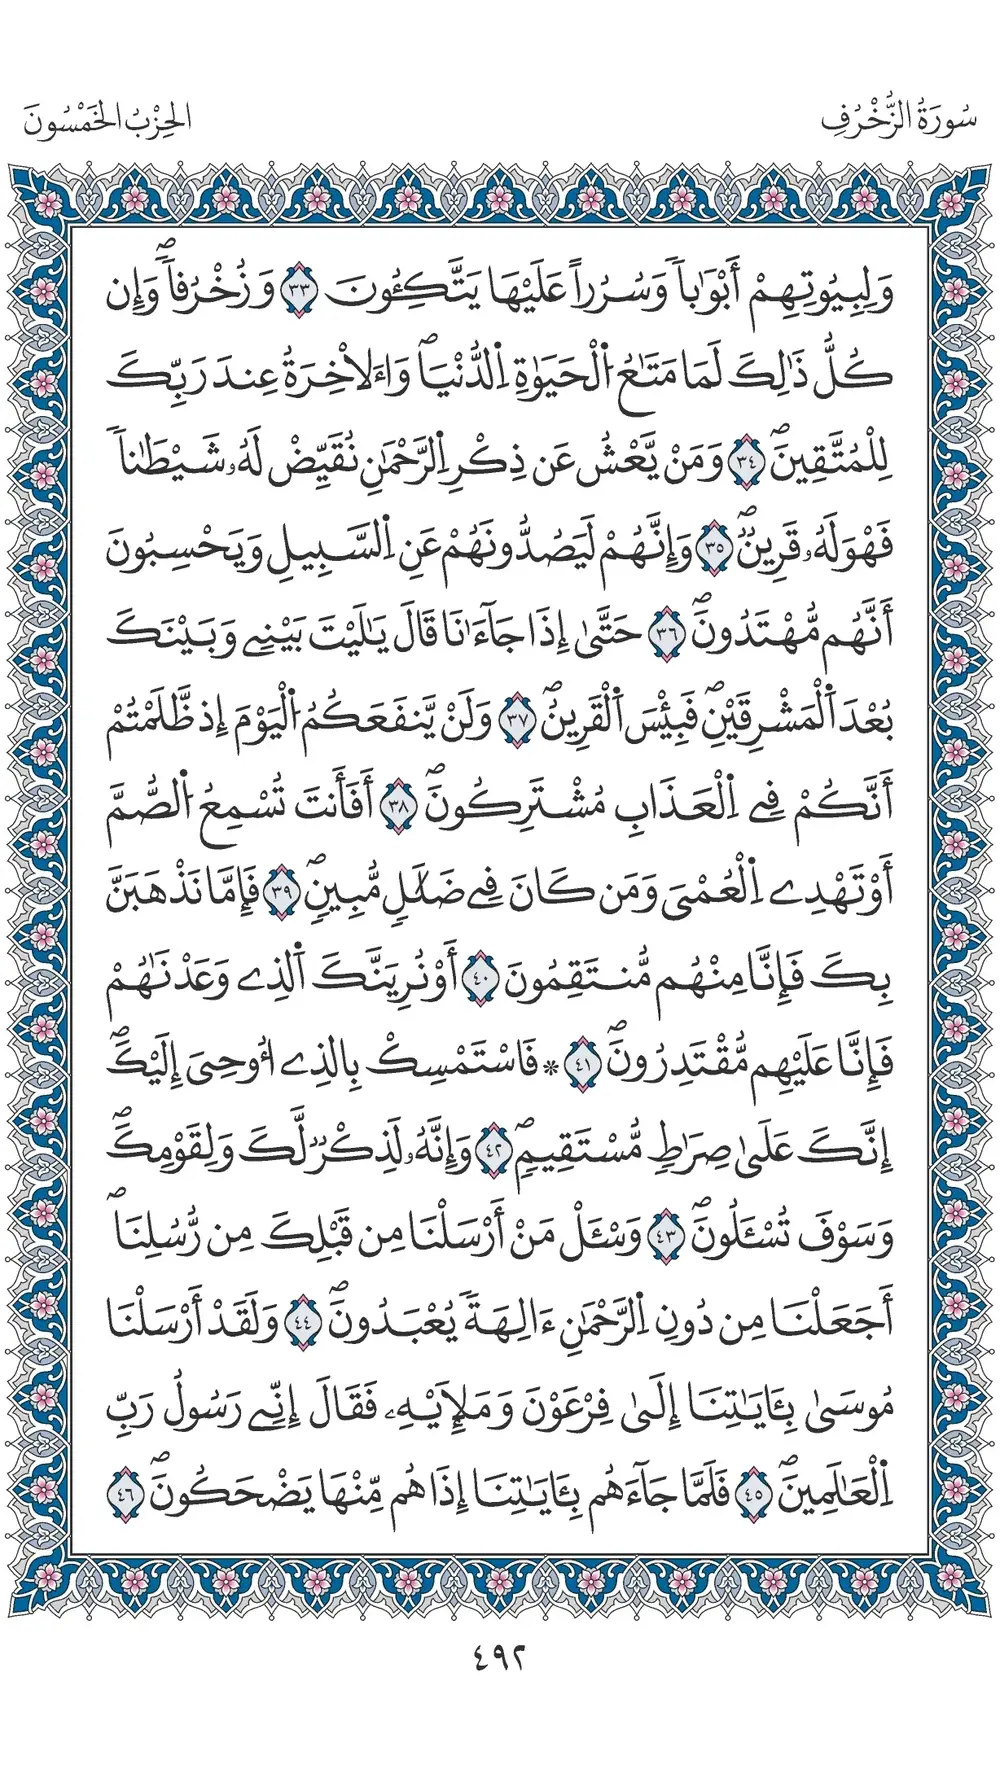 سُورَةُ الزُّخْرُفِ
الحِزْبُ الخَمْسُونَ
وَلِبِيُوتِهِمْ أَبْوَٰباٗ وَسُرُراً عَلَيْهَا يَتَّكِـُٔونَ ٣٣ وَزُخْرُفاٗۖ وَإِن
كُلُّ ذَٰلِكَ لَمَا مَتَٰعُ اُ۬لْحَيَوٰةِ اِ۬لدُّنْيَاۖ وَالَاخِرَةُ عِندَ رَبِّكَ
لِلْمُتَّقِينَۖ ٣٤ وَمَنْ يَّعْشُ عَن ذِكْرِ اِ۬لرَّحْمَٰنِ نُقَيِّضْ لَهُۥ شَيْطَٰناٗ
فَهُوَ لَهُۥ قَرِينٞۖ ٣٥ وَإِنَّهُمْ لَيَصُدُّونَهُمْ عَنِ اِ۬لسَّبِيلِ وَيَحْسِبُونَ
أَنَّهُم مُّهْتَدُونَۖ ٣٦ حَتَّىٰ إِذَا جَآءَٰنَا قَالَ يَٰلَيْتَ بَيْنِے وَبَيْنَكَ
بُعْدَ اَ۬لْمَشْرِقَيْنِۖ فَبِئْسَ اَ۬لْقَرِينُۖ ٣٧ وَلَنْ يَّنفَعَكُمُ اُ۬لْيَوْمَ إِذ ظَّلَمْتُمْ
أَنَّكُمْ فِے اِ۬لْعَذَابِ مُشْتَرِكُونَۖ ٣٨ أَفَأَنتَ تُسْمِعُ اُ۬لصُّمَّ
أَوْ تَهْدِے اِ۬لْعُمْىَ وَمَن كَانَ فِے ضَلَٰلٖ مُّبِينٖۖ ٣٩ فَإِمَّا نَذْهَبَنَّ
بِكَ فَإِنَّا مِنْهُم مُّنتَقِمُونَ ٤٠ أَوْ نُرِيَنَّكَ اَ۬لذِے وَعَدْنَٰهُمْ
فَإِنَّا عَلَيْهِم مُّقْتَدِرُونَۖ ٤١ * فَاسْتَمْسِكْ بِالذِے أُوحِىَ إِلَيْكَۖ
إِنَّكَ عَلَىٰ صِرَٰطٖ مُّسْتَقِيمٖۖ ٤٢ وَإِنَّهُۥ لَذِكْرٞ لَّكَ وَلِقَوْمِكَۖ
وَسَوْفَ تُسْـَٔلُونَۖ ٤٣ وَسْـَٔلْ مَنْ أَرْسَلْنَا مِن قَبْلِكَ مِن رُّسُلِنَاۖ
أَجَعَلْنَا مِن دُونِ اِ۬لرَّحْمَٰنِ ءَالِهَةٗ يُعْبَدُونَۖ ٤٤ وَلَقَدْ أَرْسَلْنَا
مُوسَىٰ بِـَٔايَٰتِنَا إِلَىٰ فِرْعَوْنَ وَمَلَإِيْهِۦ فَقَالَ إِنِّے رَسُولُ رَبِّ
اِ۬لْعَٰلَمِينَۖ ٤٥ فَلَمَّا جَآءَهُم بِـَٔايَٰتِنَا إِذَا هُم مِّنْهَا يَضْحَكُونَۖ ٤٦
٤٩٢